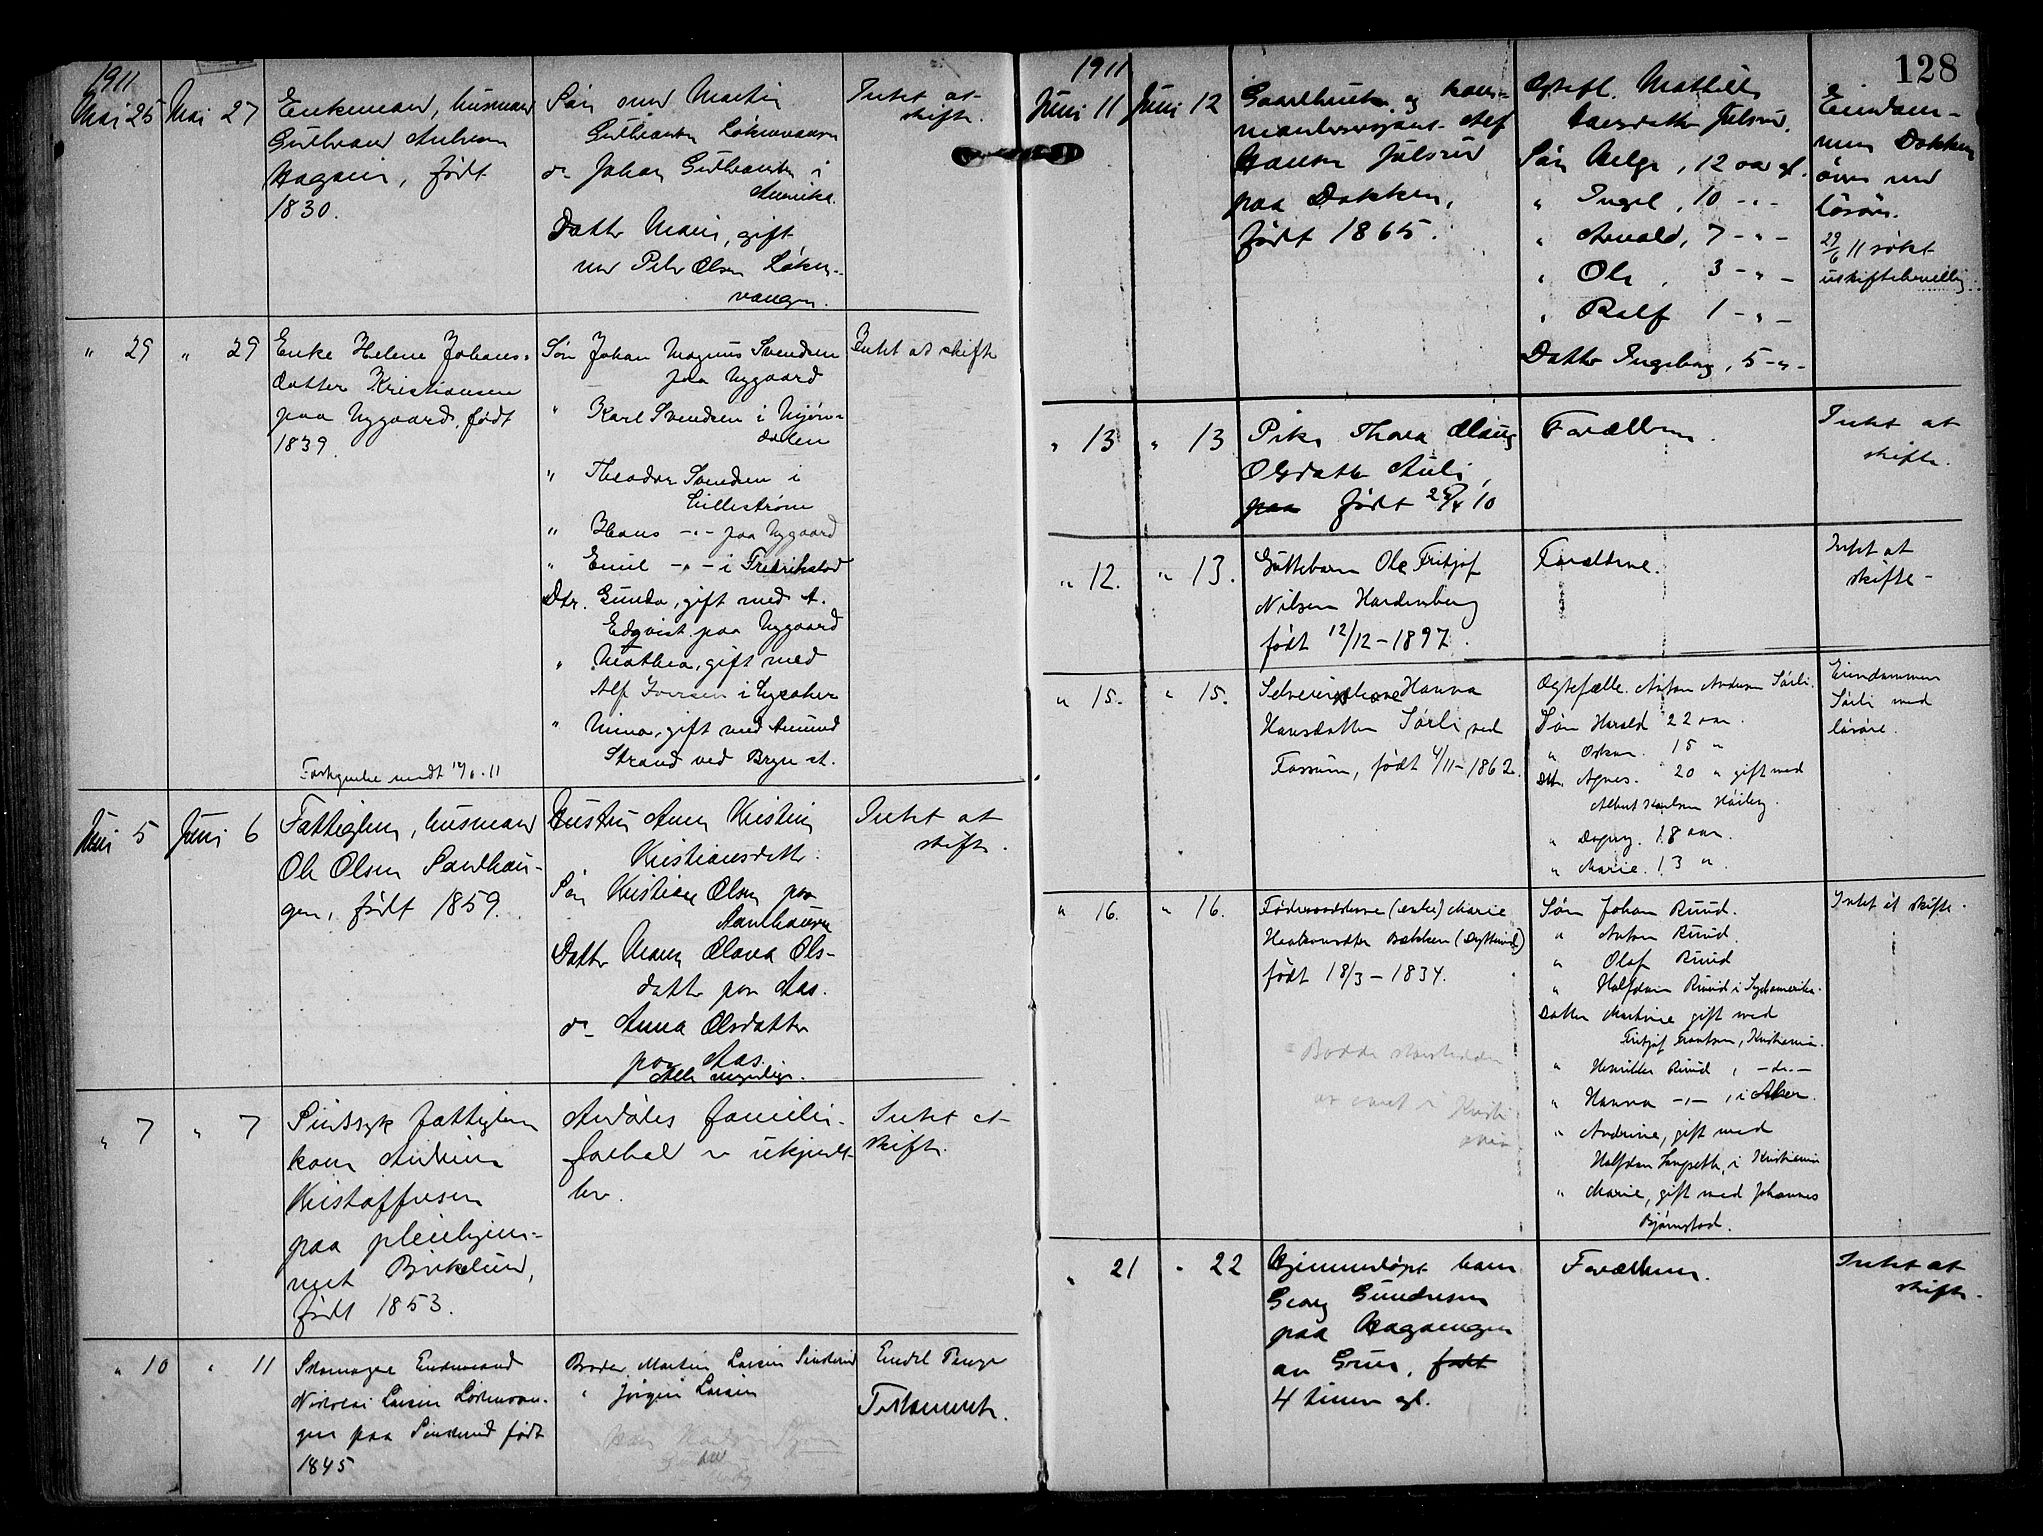 1911
Mai 25 Mai 27 Enkemand, husmand
Gulbrand
født
1830.
Søn Martin
Gulbrandsen
do Johan Gulbrandsen i
Amerika.
Datter Marie, gift
med Peter Olsen Løken-
vangen.
Intet at
skifte.
" 29 " 29 Enke Helene Johans-
datter Kristiansen
paa Nygaard, født
1839.
Søn Johan Magnus Svendsen
paa Nygaard
" Karl Svendsen i Mjøn-
dalen
" Theodor Svendsen i
Lillestrøm
" Hans -"- paa Nygaard
" Emil -"- i Fredrikstad
Dtr. Gunda, gift med A.
Edqvist paa Nygaard
" Mathea, gift med
Alf Iversen i Lysaker
" Mina, gift med Amund
Strand ved Bryn st.
Intet at skifte
Juni 5 Juni 6 Fattiglem, husmand
Ole Olsen Sandhau-
gen, født 1859.
Hustru Anne Kristine
Kristiansdatter.
Søn Kristian Olsen paa
Datter Olava Ols-
datter paa Aas.
do Anna Olsdatter
paa Aas.
Alle myndige.
Intet at
skifte.
" 7 " 7 Sindssyk fattiglem
kone
Kristoffersen
paa pleiehjem-
met Birkelund,
født 1853.
Avdødes familie-
forhold er ukjendt
her.
Intet at
skifte.
" 10 " 11 Skomager
Nikolai Larsen
paa født
1845
Broder Martin Larsen
" Jørgen Larsen
Endel Penge
Testamente.
128
1911
Juni 11 Juni 12 Gaardbruker og kom-
Alf
Hansen Julsrud
paa Dokken,
født 1865.
Ægtef. Mathilde
Larsdatter Julsrud.
Søn Helge, 12 aar gl.
" Ingel, 10 -"-
" Arvald, 7 -"-
" Ole, 3 -"-
" Rolf 1 -"-
Datter Ingeborg, 5 -"-
Eiendom-
men Dokken
med
løsøre.
29/6 11 søkt
uskiftebevilling.
" 13 " 13 Pike Thora
Olsdatter Auli,
paa født
Forældrene.
Intet at
skifte.
" 12. " 13. Guttebarn Ole Fritjof
Nilsen Hardenberg
født 12/12-1897.
Forældrene.
Intet at
skifte-
" 15. " 15. Hanna
Hansdatter Sørli ved
Fossum, født 4/11-1862.
Ægtefælle. Anton Andersen Sørli.
Søn Harald 22 aar.
" Oskar. 15 "
Dtr. Agnes. 20 " gift med
Albert Karlsen Høiby.
" Dagny. 18 aar.
" Marie. 13 "
Eiendommen
Sørli med
løsøre.
" 16. " 16. Føderaadskone (enke) Marie
Haakonsdtr Bækken
født 18/3-1834.
Søn Johan Ruud.
" Anton Ruud.
" Olaf Ruud
" Halfdan Ruud i Sydamerika.
Datter Martine gift med
Fritjof Frantsen, Kristiania.
" Henrikke Ruud, -do.-
" Hanna -"-, i Aker.
" Andrine, gift med
Halfdan Langseth, i Kristiania
" Marie, gift med Johannes
Bjørnstad.
Intet at skifte.
" 21 " 22 Hjemmedøpt barn
Georg Gundersen
paa
av Grue, født
4 timer gl.
Forældrene.
Intet at
skifte.